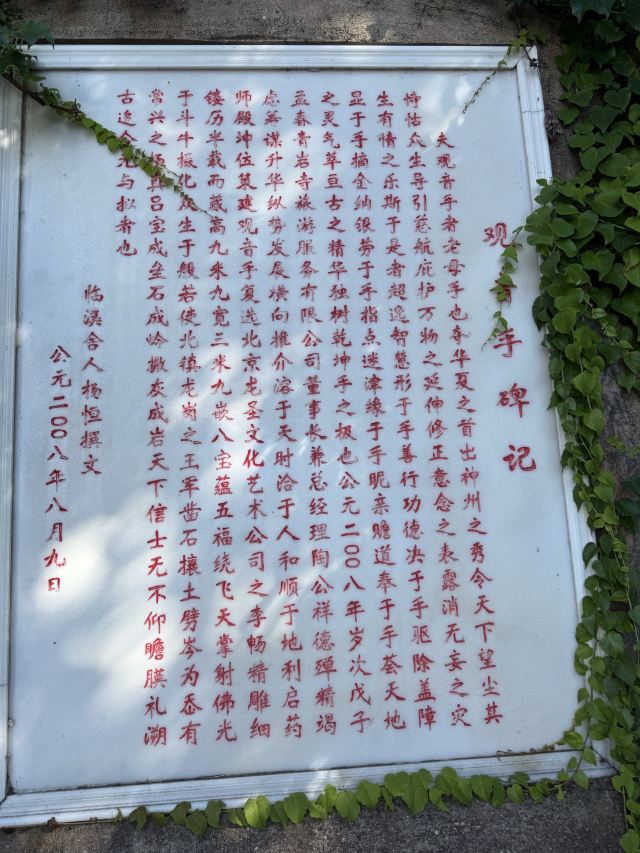 观音手碑记
夫观音手者老母手也夺华夏之首出神州之秀令天下望尘其
恃怙众生导引慈航庇护万物之延伸修正意念之表露消无妄之灾
生有情之乐斯于是者超逸智慧形于手善行功德决于手驱除盖障
显于手摘金纳银势于手指点迷津缘于手昵亲瞻道奉于手荟天地
之灵气萃亘古之精华独树乾坤手之极也公元二00八年岁次戊子
益春青岩寺旅游服务有限公司董事长兼总经理陶公祥德殚精竭
虑筹谋升华纵势发展横向推介溶于天时洽于人和顺于地利启药
师殿坤位策建观音手复选北京龙圣文化艺术公司之李畅精雕细
镂历半载而蒇高九米九宽三米九嵌八宝蕴五福绕飞天掌射佛光
于斗牛振化众生于般若使北镇龙岗之王军凿石攘土劈岑为岙有
常兴之杨吕宝成垒石成岭撒灰成岩天下信士无不仰瞻膜礼溯
古追今无与拟者也
临溟舍人杨恒撰文
公元二00八年八月九日